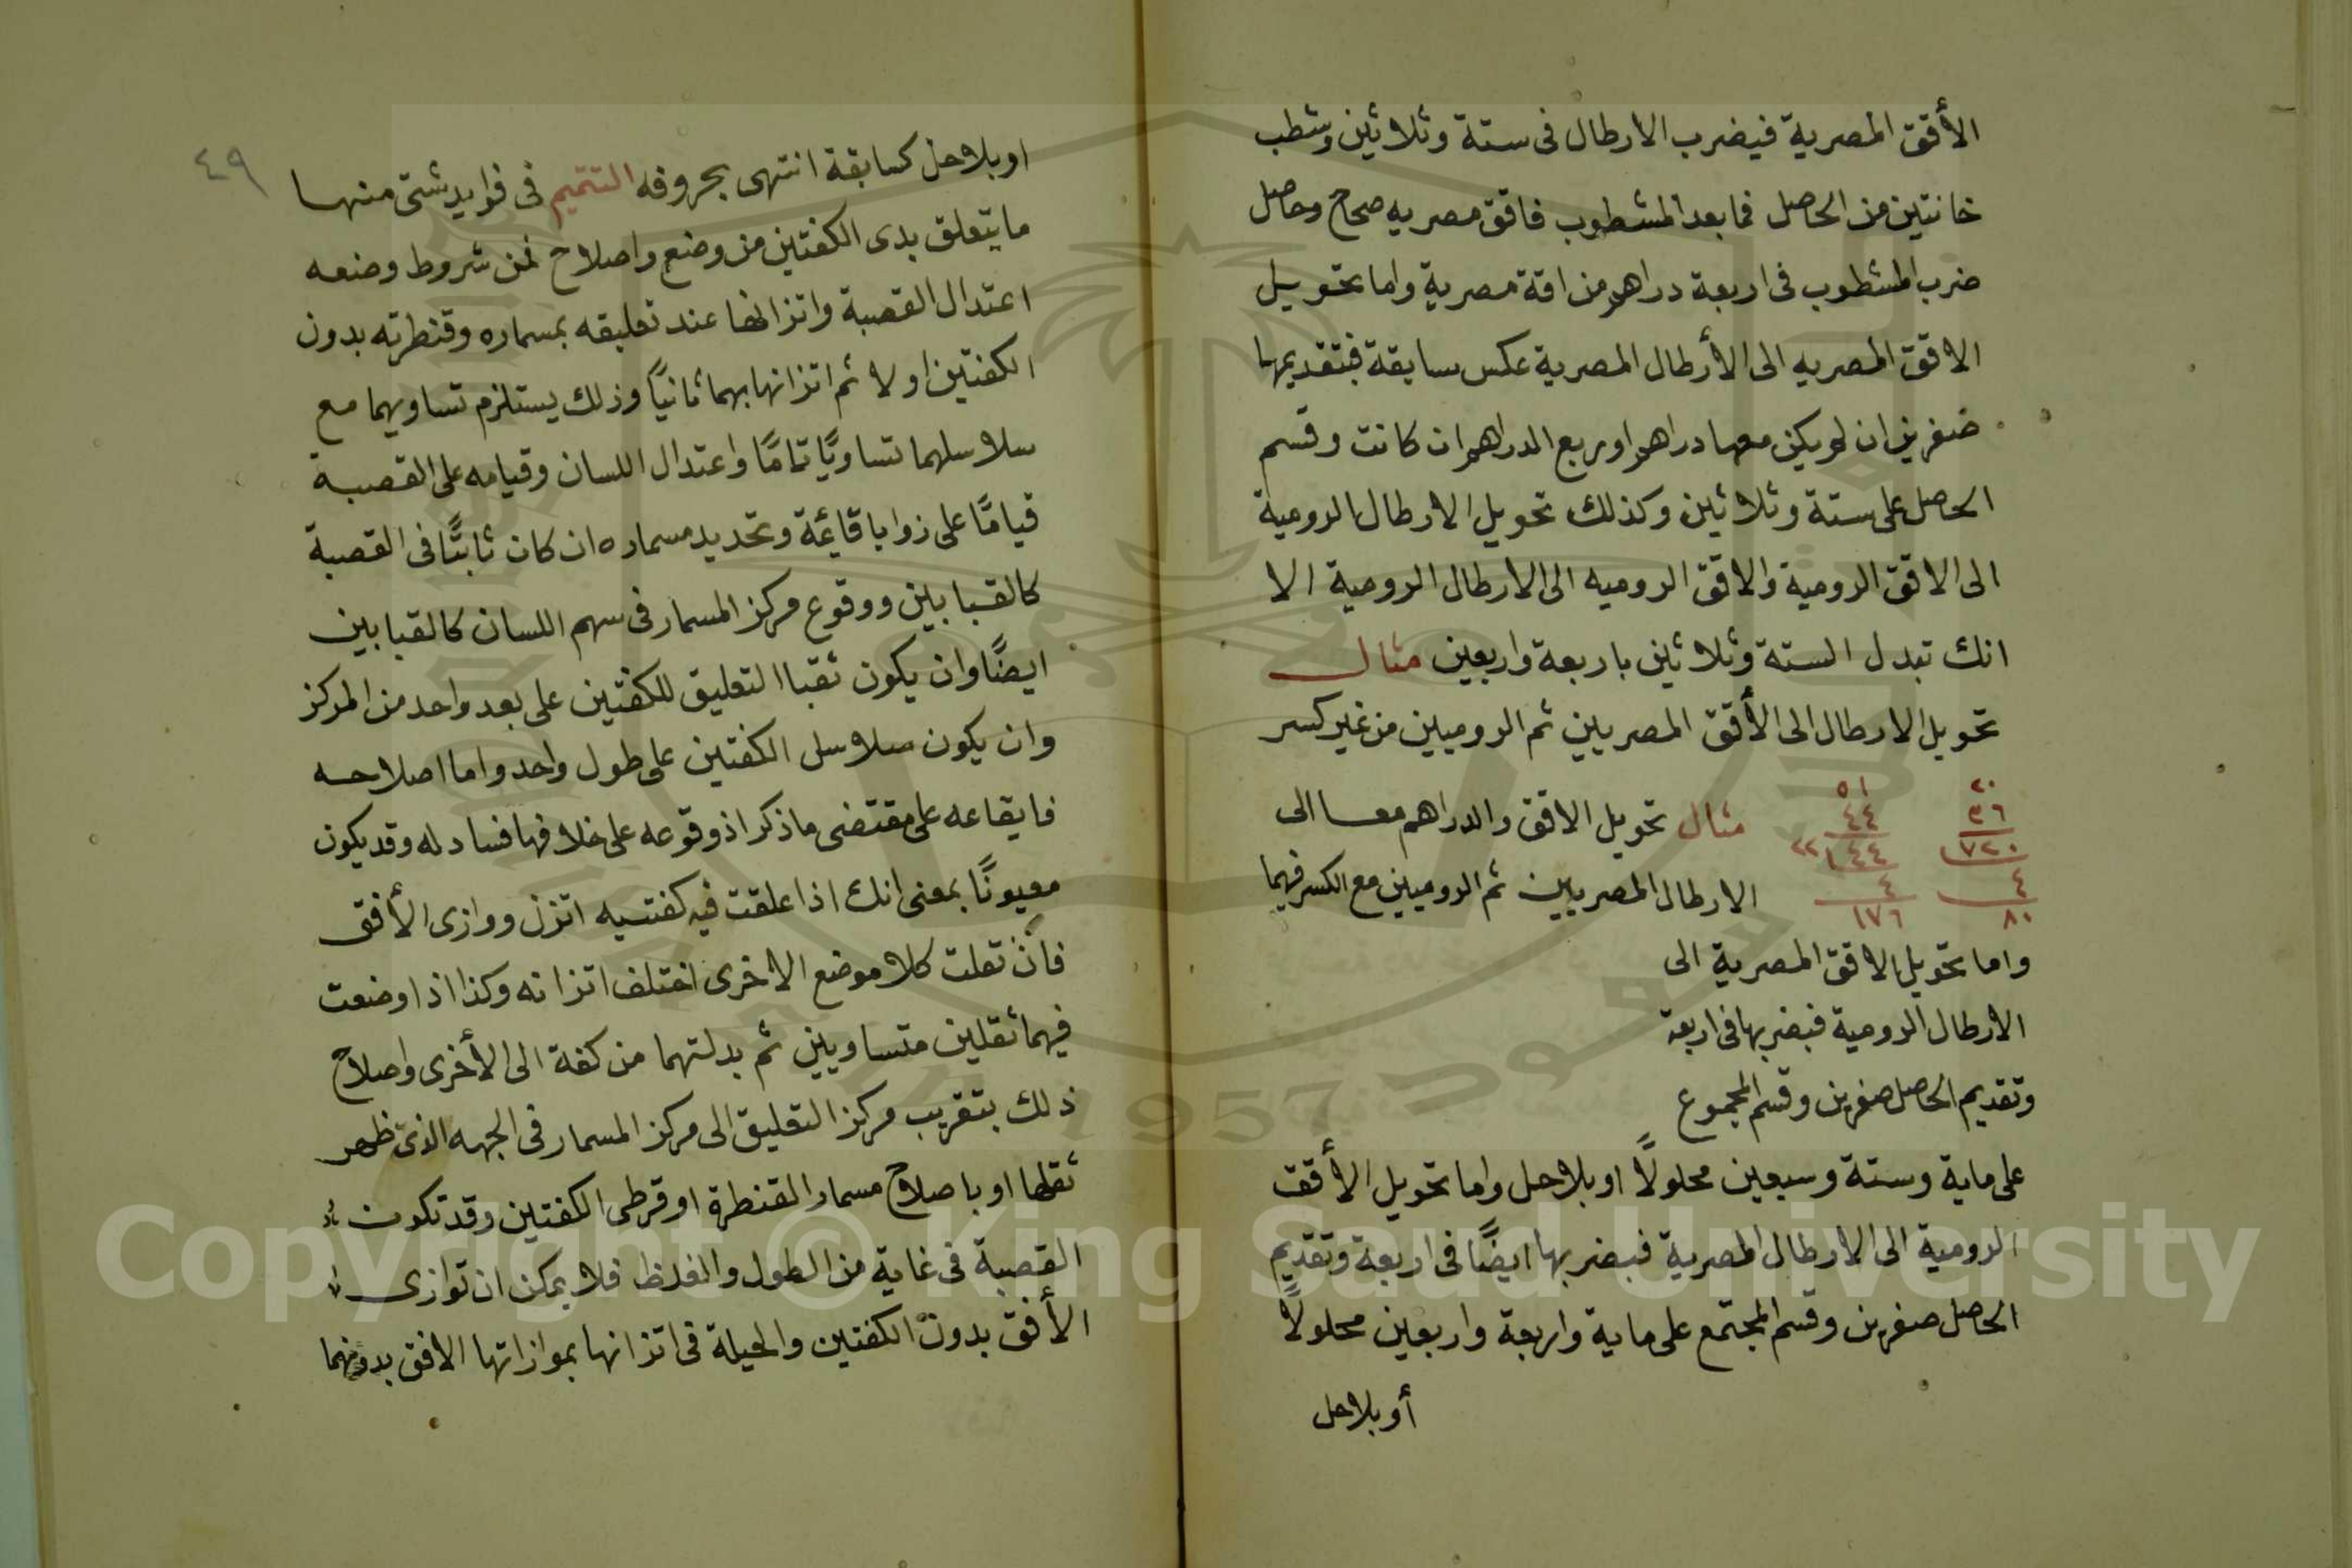 الأقق المصرية فيضرب الارطال فى ستة وثلاثين وشطب
خانتين من الحاصل فما بعد المشطوب فاقق مصريه صحاح وحاصل
ضرب المشطوب فى اربعة دراهم من اقة مصرية واما تحويل
الاقق المصريه الى الأرطال المصرية عكس سابقة فبتقديمها
صفرين ان لم يكن معها دراهم او ربع الدراهم ان كانت وقسم
الحاصل على ستة وثلاثين وكذلك تحويل الارطال الرومية
الى الاقق الرومية والاقق الروميه الى الارطال الرومية الا
انك تبدل الستة وثلاثين باربعة واربعين مثال
تحويل الارطال الى الأقق المصريين ثم الروميين من غير كسر
٢٠ ٥١
٣٦ ٤٤
٧٢٠ ٤٤ ٢٢
٤ ٤
٨٠ ١٧٦
مثال تحويل الاقق والدراهم معا الى
الارطال المصريين ثم الروميين مع الكسر فيهما
واما تحويل الاقق المصرية الى
الارطال الرومية فبضربها فى اربعة
وتقديم الحاصل صفرين وقسم المجموع
على ماية وستة وسبعين محلولًا او بلا حل واما تحويل الأقق
الرومية الى الارطال المصرية فبضربها ايضًا فى اربعة وتقديم
الحاصل صفرين وقسم المجتمع على ماية واربعة واربعين محلولًا
أو بلا حل
٤٩
او بلا حل كسابقة انتهى بحروفه التتميم فى فوايد شتى منها
ما يتعلق بذى الكفتين من وضع واصلاح فمن شروط وضعه
اعتدال القصبة واتزانها عند تعليقه بمسماره وقنطرته بدون
الكفتين اولا ثم اتزانها بهما ثانيًا وذلك يستلزم تساويهما مع
سلاسلهما تساويًا تامًا واعتدال اللسان وقيامه على القصبة
قيامًا على زوايا قايمة وتحديد مسماره ان كان ثابتًا فى القصبة
كالقبابين ووقوع مركز المسمار فى سهم اللسان كالقبابين
ايضًا وان يكون ثقبا التعليق للكفتين على بعد واحد من المركز
وان يكون سلاسل الكفتين على طول واحد واما اصلاحه
فايقاعه على مقتضى ما ذكر اذ وقوعه على خلافها فساد له وقد يكون
معيونًا بمعنى انك اذا علقت فيه كفتيه اتزن ووازى الأفق
فان نقلت كلا موضع الاخرى اختلف اتزانه وكذا اذا وضعت
فيهما ثقلين متساويين ثم بدلتهما من كفة الى الأخرى واصلاح
ذلك بتقريب مركز التعليق الى مركز المسمار فى الجهه الذى ظهر
ثقلها او باصلاح مسمار القنطرة او قرطى الكفتين وقد تكون
القصبة فى غاية من الطول والغلظ فلا يمكن ان توازى
الأفق بدون الكفتين والحيلة فى اتزانها بموازاتها الافق بدونهما
Copyright © King Saud University
1957